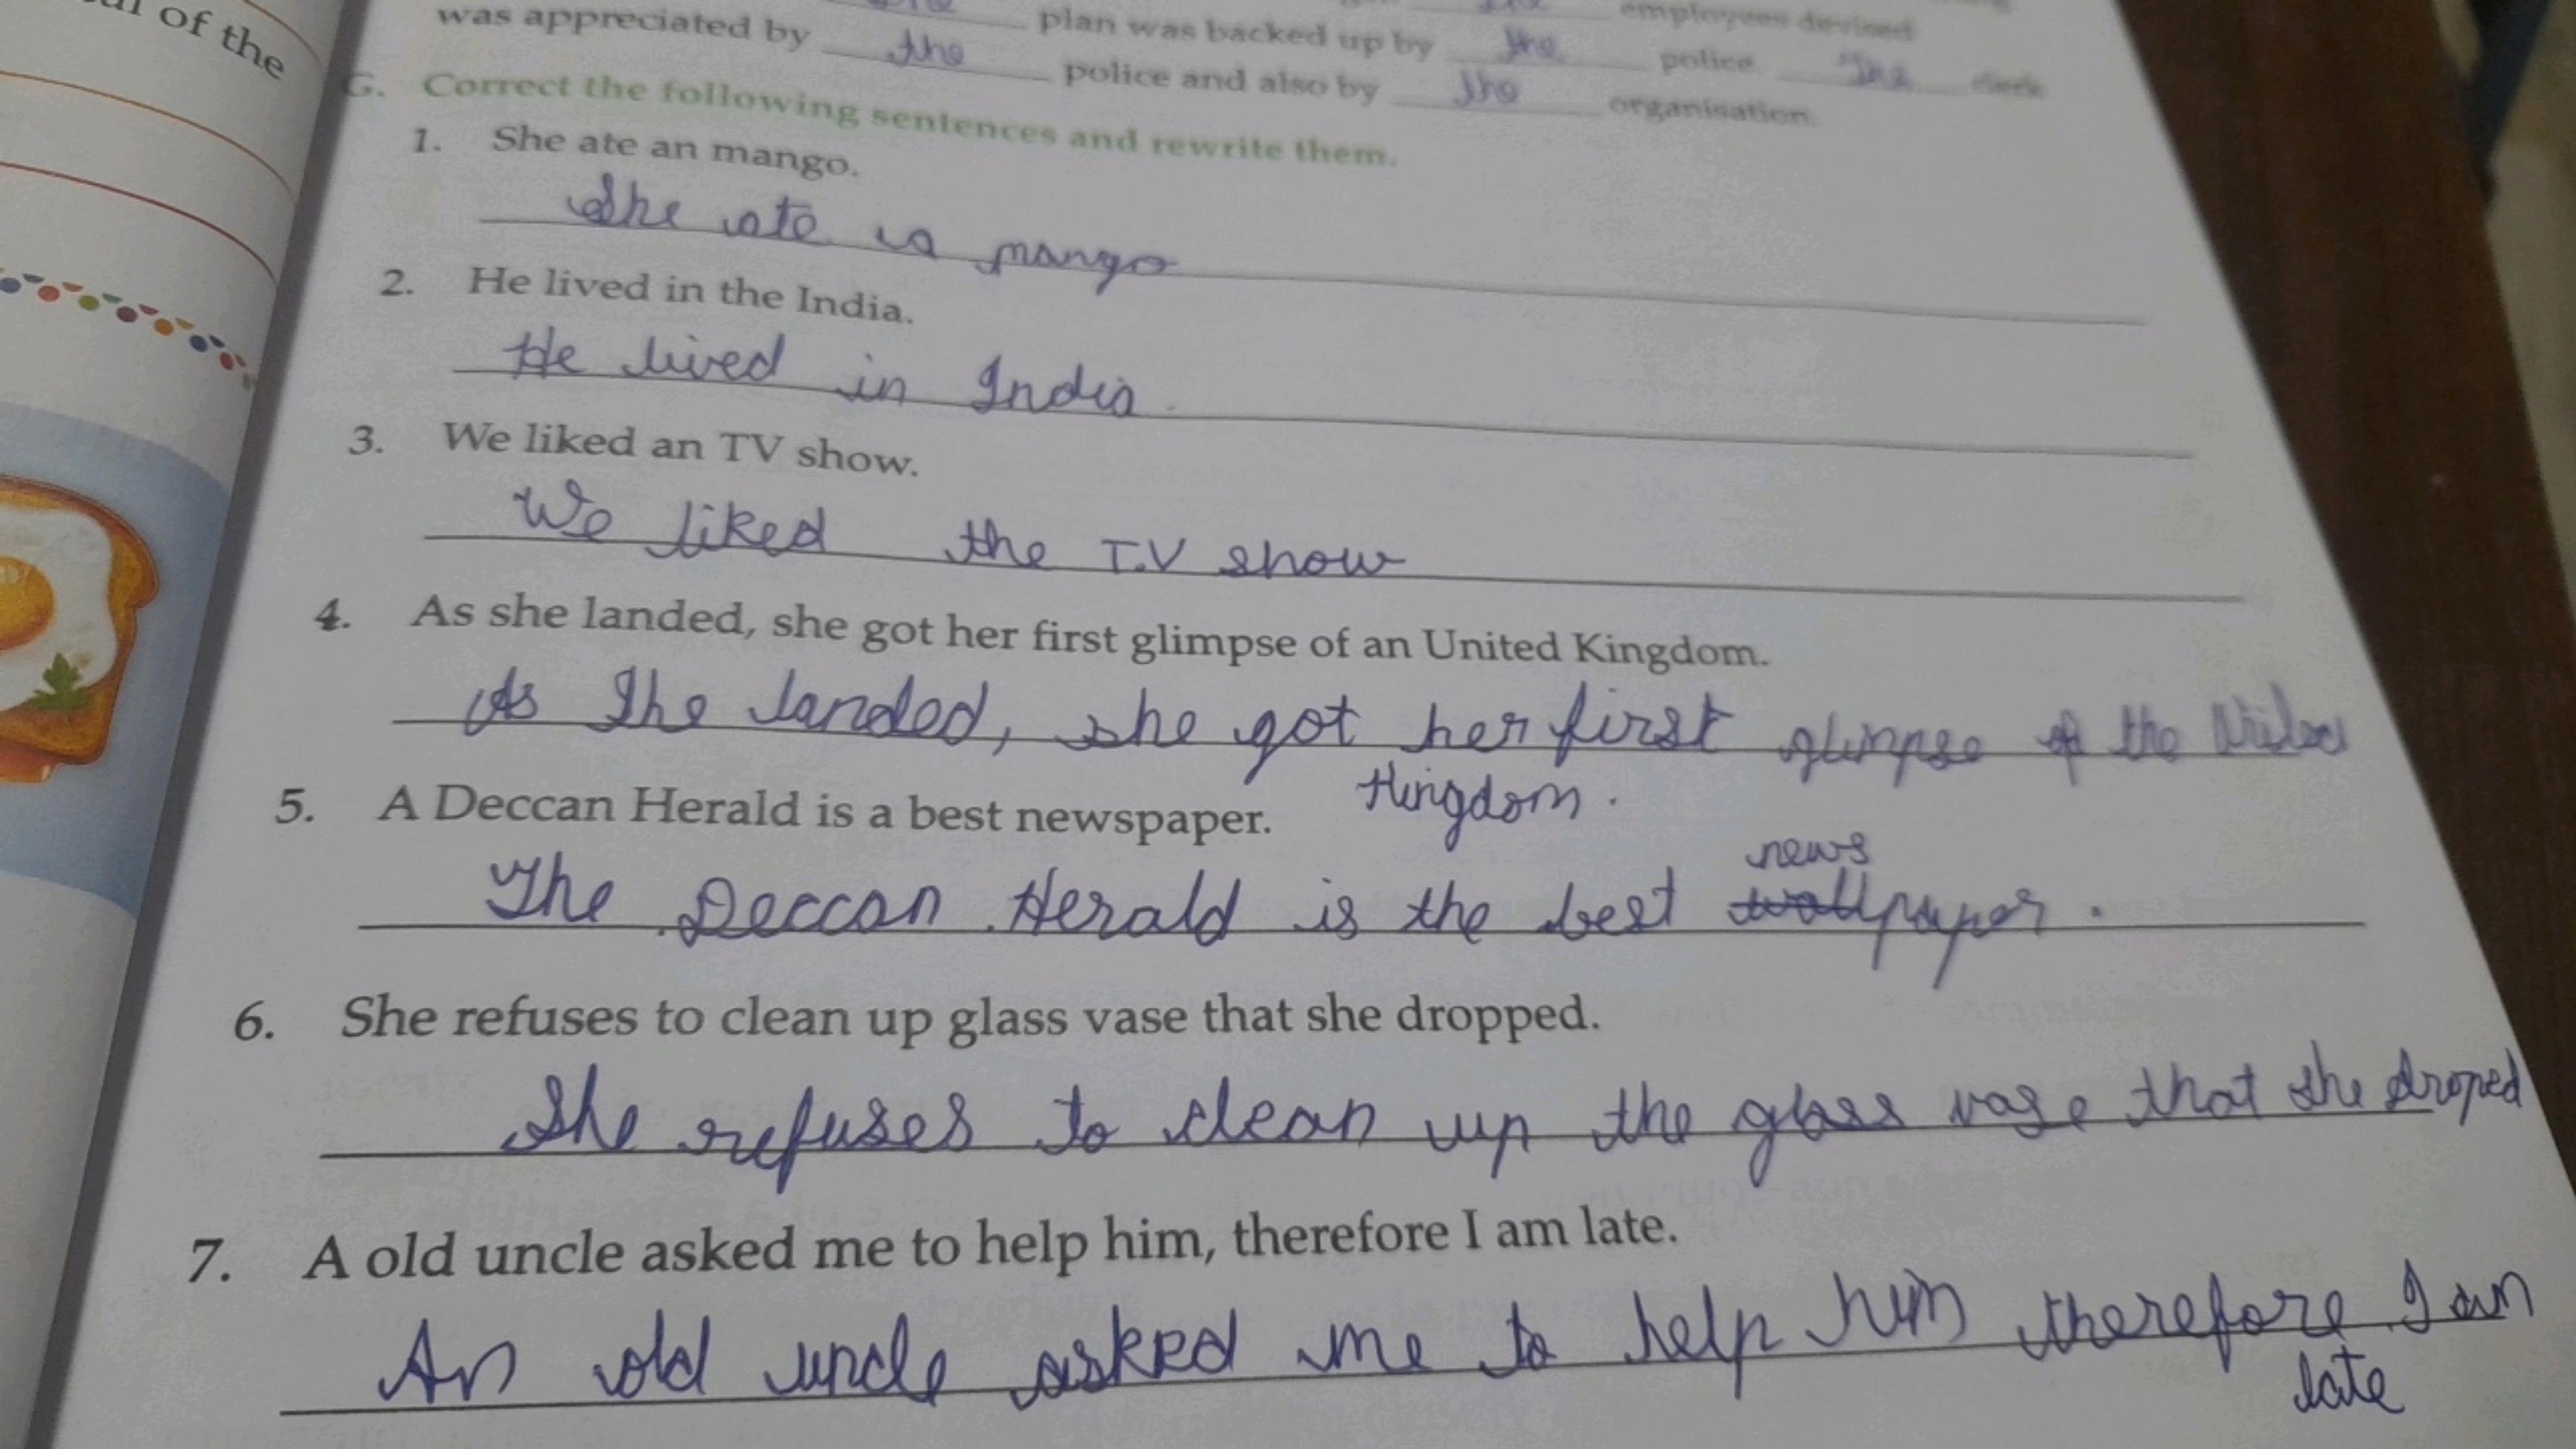 of the
employees devised
plan was backed up by the police. The
was appreciated by the police and also by the organisation.
G. Correct the following sentences and rewrite them.
1. She ate an mango.
She ate a mango
2. He lived in the India.
He lived in India
3. We liked an TV show.
We liked the T.V show
4. As she landed, she got her first glimpse of an United Kingdom.
As She landed, she got her first glimpse of the United
Kingdom.
5. A Deccan Herald is a best newspaper.
news
The Deccan Herald is the best wallpaper.
6. She refuses to clean up glass vase that she dropped.
She refuses to clean up the glass vase that she droped
7. A old uncle asked me to help him, therefore I am late.
An old uncle asked me to help him therefore I am
late